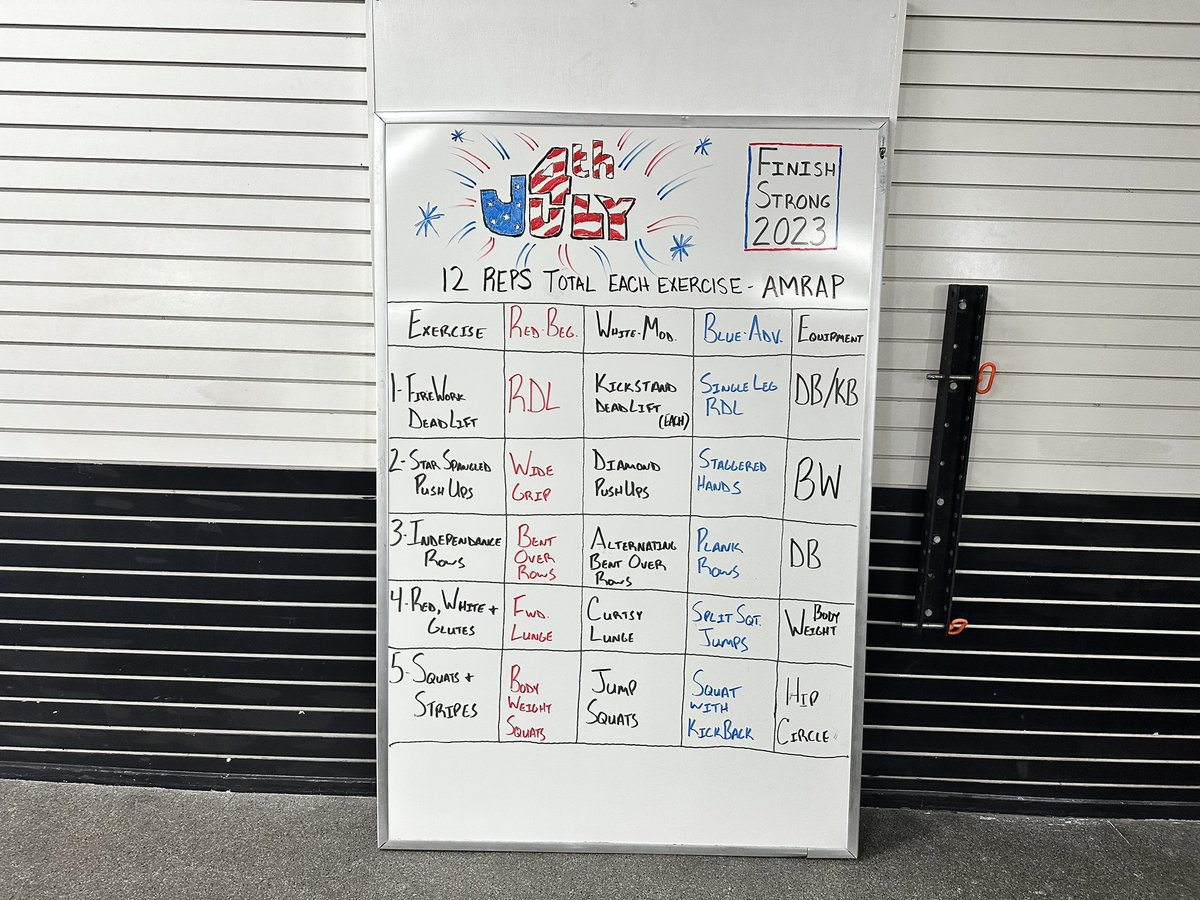 4th
JULY
FINISH
STRONG
2023
12 REPS TOTAL EACH EXERCISE - AMRAP
EXERCISE
RED-BEG.
WHITE-MOD.
BLUE-ADV.
EQUIPMENT
1-FIREWORK
DEADLIFT
RDL
KICKSTAND
DEADLIFT
(EACH)
SINGLE LEG
RDL
DB/KB
2-STAR SPANGLED
PUSH UPS
WIDE
GRIP
DIAMOND
PUSHUPS
STAGGERED
HANDS
BW
3-INDEPENDANCE
ROWS
BENT
OVER
ROWS
ALTERNATING
BENT OVER
ROWS
PLANK
ROWS
DB
4-RED, WHITE +
GLUTES
FWD.
LUNGE
CURTSY
LUNGE
SPLIT SQT.
JUMPS
BODY
WEIGHT
5-SQUATS +
STRIPES
BODY
WEIGHT
SQUATS
JUMP
SQUATS
SQUAT
WITH
KICKBACK
HIP
CIRCLE